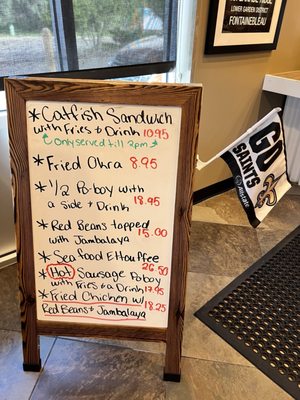 LOWER GARDEN DISTRICT
FONTAINEBLEAU
* Catfish Sandwich
with Fries & Drink 10.95
Only served till 2pm
* Fried Okra 8.95
* 1/2 Po-boy with
a side & Drink 18.95
* Red Beans topped
with Jambalaya 15.00
* Seafood Etouffee
26.50
* Hot Sausage Poboy
with Fries & a Drink 17.95
* Fried Chicken w/
Red Beans & Jambalaya 18.25
GO
SAINTS